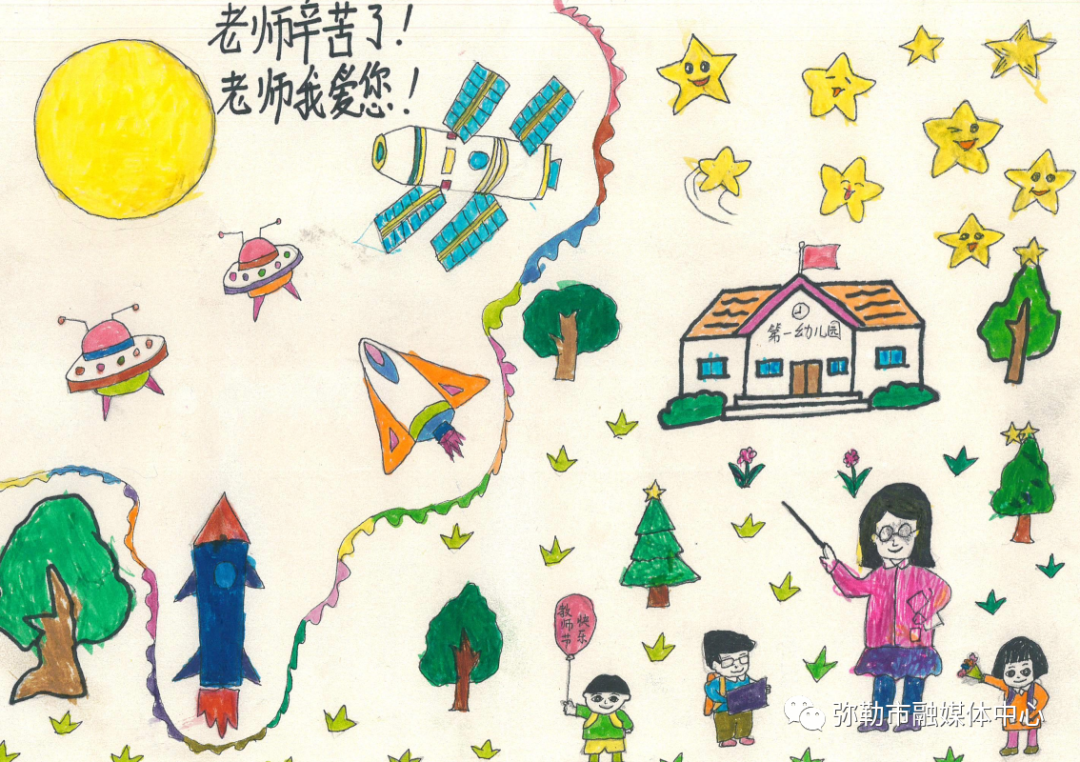 老师辛苦了！
老师我爱您！
第一幼儿园
教师节
快乐
弥勒市融媒体中心